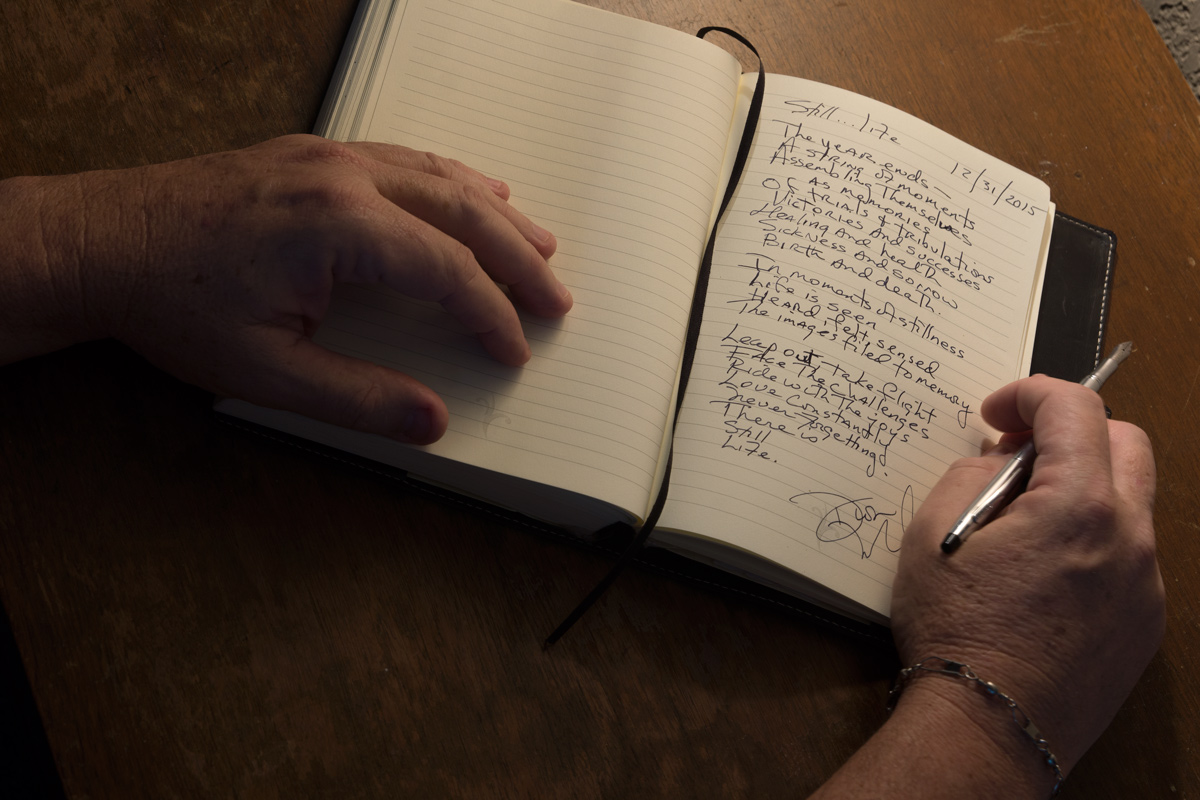 Still... Life
12/31/2015
The year ends —
A string of moments
Assembling Themselves
As memories
Of trials & tribulations
Victories And successes
Healing And health
Sickness And sorrow
Birth And death.
In moments of stillness
Life is seen
Heard, felt, sensed
The images filed to memory
Leap out, take flight
Face The challenges
Ride with The joys
Love constantly
Never forgetting
There is
Still
Life.